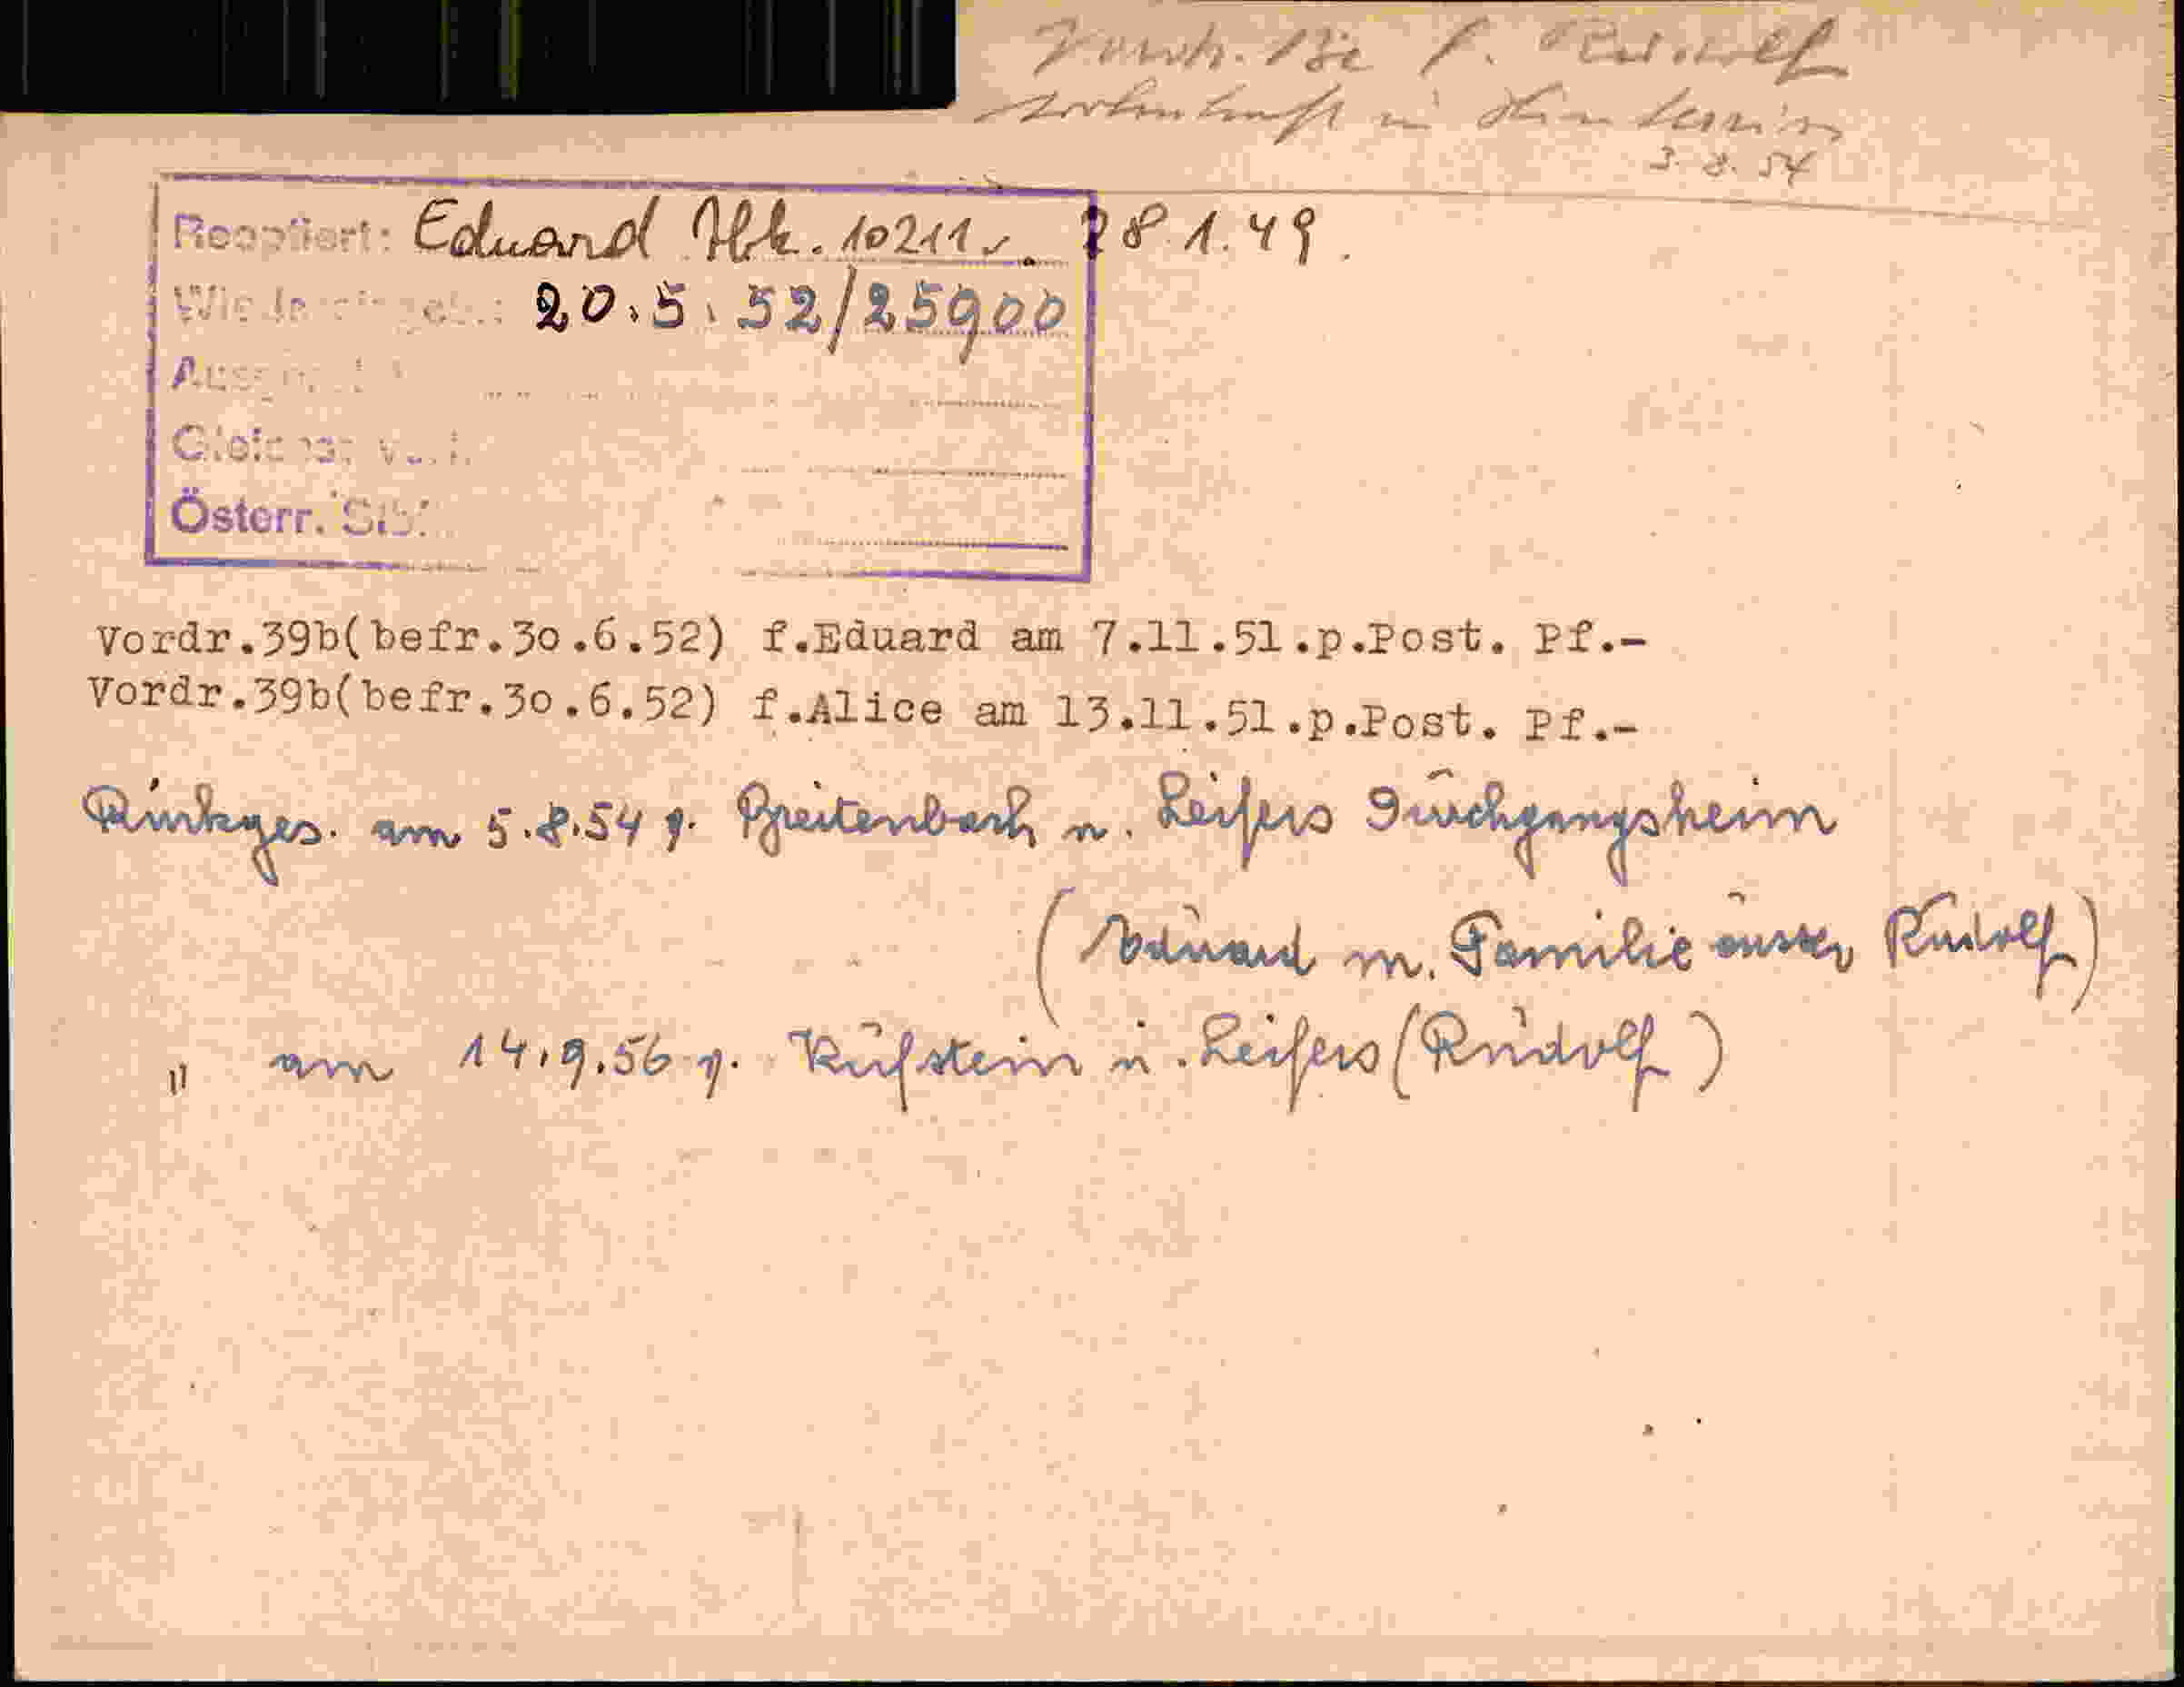 f. Rudolf
in
3.8.54
Reoptiert: Eduard Ibk. 10211 v. 28.1.49.
20.5.52/25900
Österr. Stb.
Vordr.39b(befr.30.6.52) f.Eduard am 7.11.51.p.Post. Pf.-
Vordr.39b(befr.30.6.52) f.Alice am 13.11.51.p.Post. Pf.-
Rückges. am 5.8.54 v. Breitenbach n. Leifers Durchgangsheim
(Eduard m. Familie ausser Rudolf)
" am 14.9.56 v. Kufstein n. Leifers (Rudolf)